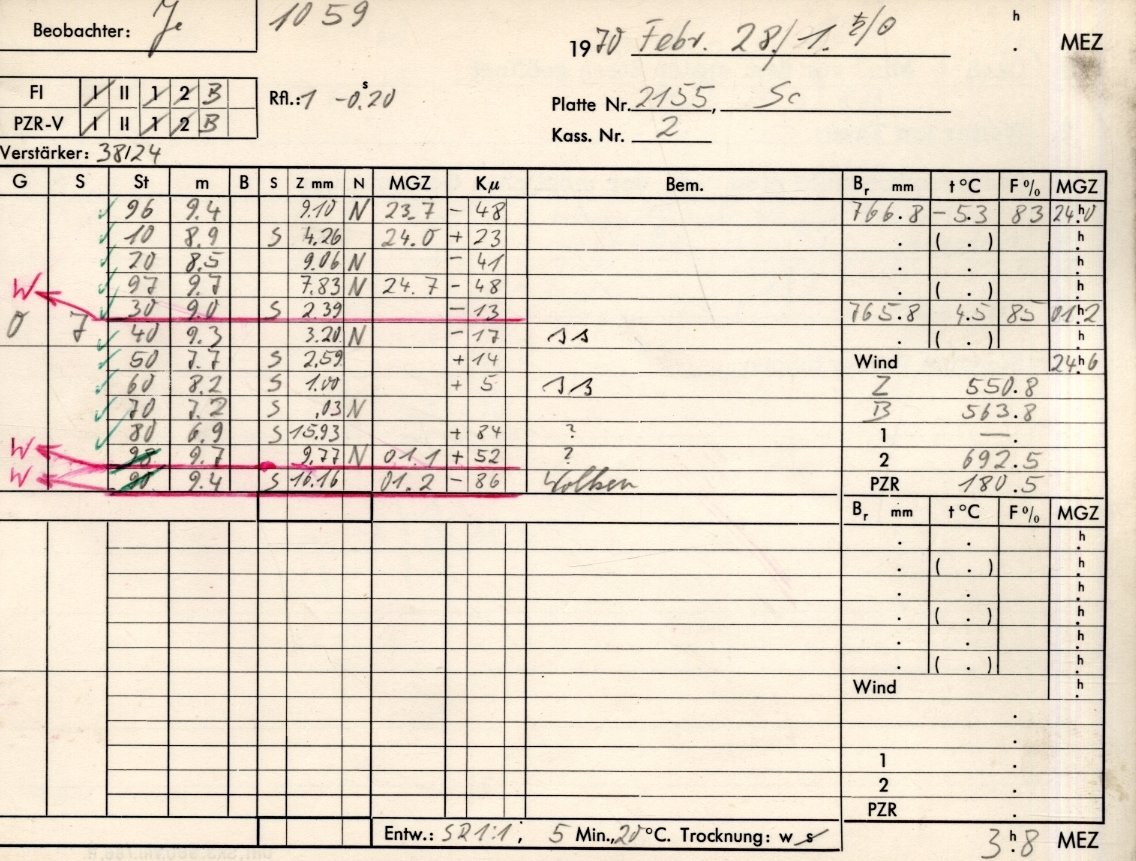 Beobachter: Je 1059
1970 Febr. 28/1. ♄/☉ h . MEZ
FI I II 1 2 B
Rfl.: 1 -0.ˢ20
Platte Nr. 2155, Sc
PZR-V I II 1 2 B
Kass. Nr. 2
Verstärker: 38/24
G S St m B S Z mm N MGZ Kμ Bem. Br mm t°C F% MGZ
96 9.4 9.10 N 23.7 - 48 766.8 - 5.3 83 24ʰ0
10 8.9 S 4.26 24.0 + 23 . ( . ) h
20 8.5 9.06 N - 41 . . h
W 97 9.7 7.83 N 24.7 - 48 . ( . ) h
30 9.0 S 2.39 - 13 765.8 4.5 85 01ʰ2
0 7 40 9.3 3.20 N - 17 . ( . ) h
50 7.7 S 2.59 + 14 Wind 24ʰ6
60 8.2 S 1.00 + 5 Z 550.8
70 7.2 S .03 N B 563.8
80 6.9 S 15.93 + 84 ? 1 —.
W 98 9.7 9.77 N 01.1 + 52 ? 2 692.5
W 90 9.4 S 16.16 01.2 - 86 Wolken PZR 180.5
Br mm t°C F% MGZ
. . h
. ( . ) h
. . h
. ( . ) h
. . h
. ( . ) h
Wind h
.
.
1 .
2 .
PZR .
Entw.: SR1:1; 5 Min., 20°C. Trocknung: w s
3ʰ.8 MEZ